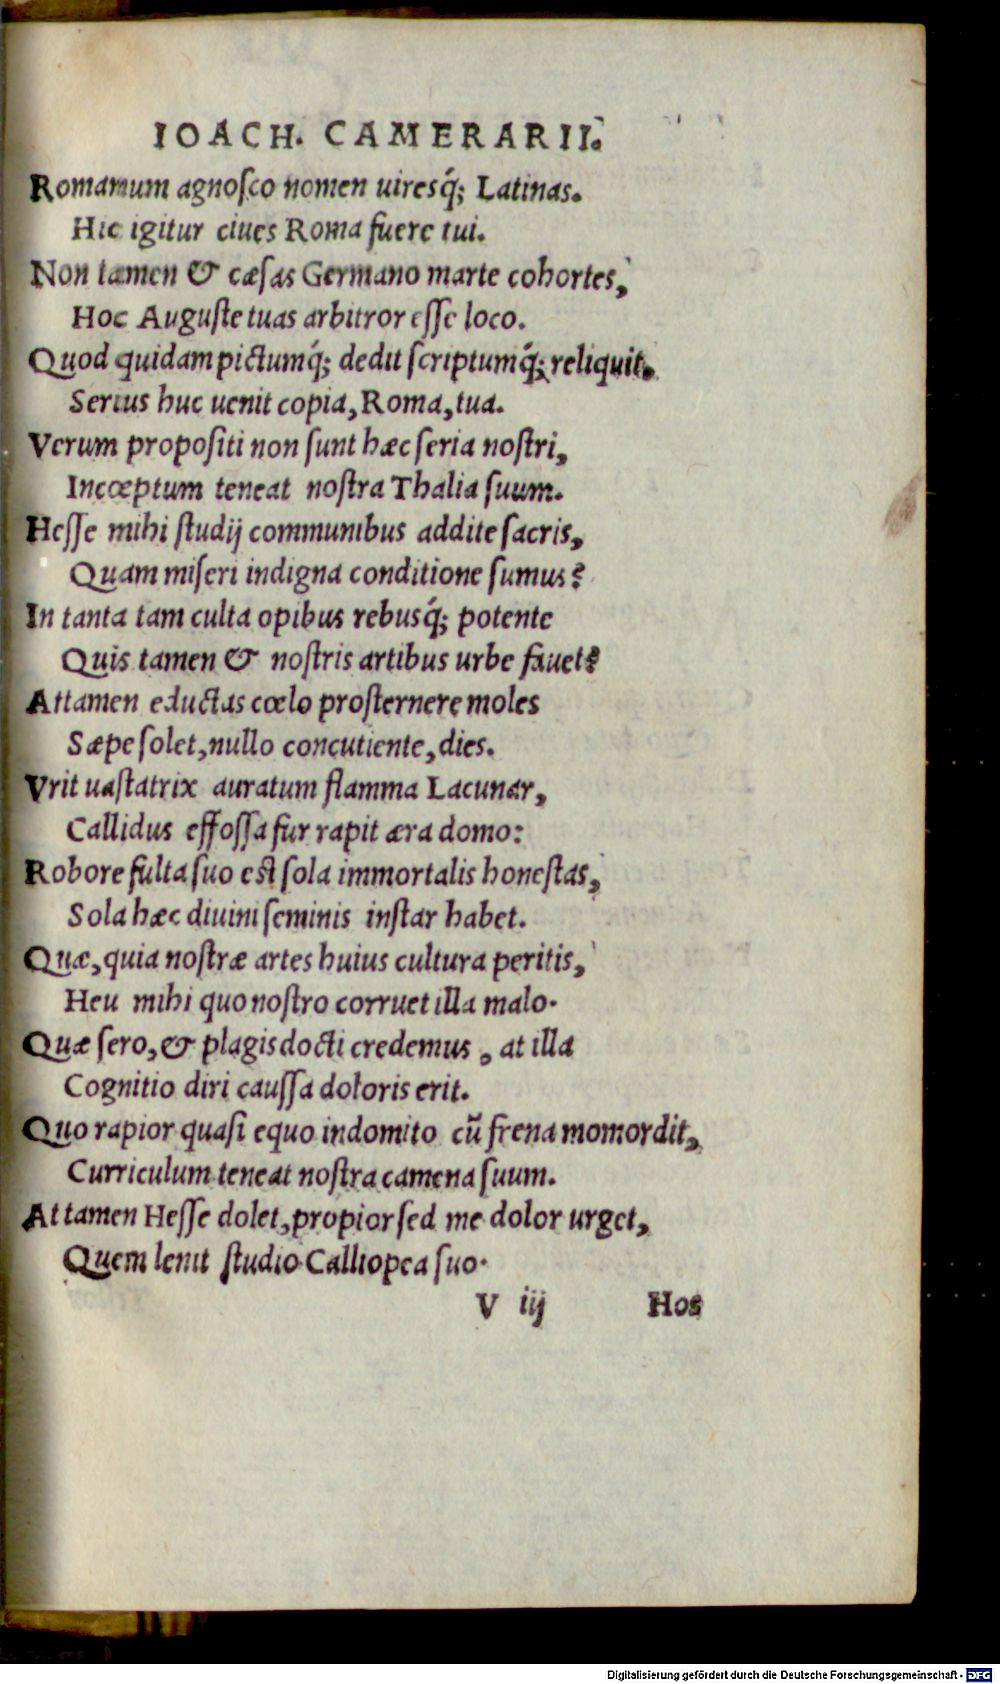 IOACH. CAMERARII.
Romanum agnosco nomen uiresq́; Latinas.
Hic igitur ciues Roma fuere tui.
Non tamen & cæsas Germano marte cohortes,
Hoc Auguste tuas arbitror esse loco.
Quod quidam pictumq́; dedit scriptumq́; reliquit.
Serius huc uenit copia, Roma, tua.
Verum propositi non sunt hæc seria nostri,
Incœptum teneat nostra Thalia suum.
Hesse mihi studij communibus addite sacris,
Quam miseri indigna conditione sumus?
In tanta tam culta opibus rebusq́; potente
Quis tamen & nostris artibus urbe fauet?
Attamen eductas cœlo prosternere moles
Sæpe solet, nullo concutiente, dies.
Vrit uastatrix auratum flamma Lacunar,
Callidus effossa fur rapit æra domo:
Robore fulta suo est sola immortalis honestas,
Sola hæc diuini seminis instar habet.
Quæ, quia nostræ artes huius cultura peritis,
Heu mihi quo nostro corruet illa malo.
Quæ sero, & plagis docti credemus, at illa
Cognitio diri caussa doloris erit.
Quo rapior quasi equo indomito cū frena momordit,
Curriculum teneat nostra camena suum.
Attamen Hesse dolet, propior sed me dolor urget,
Quem lenit studio Calliopea suo.
V iij Hos
Digitalisierung gefördert durch die Deutsche Forschungsgemeinschaft - DFG